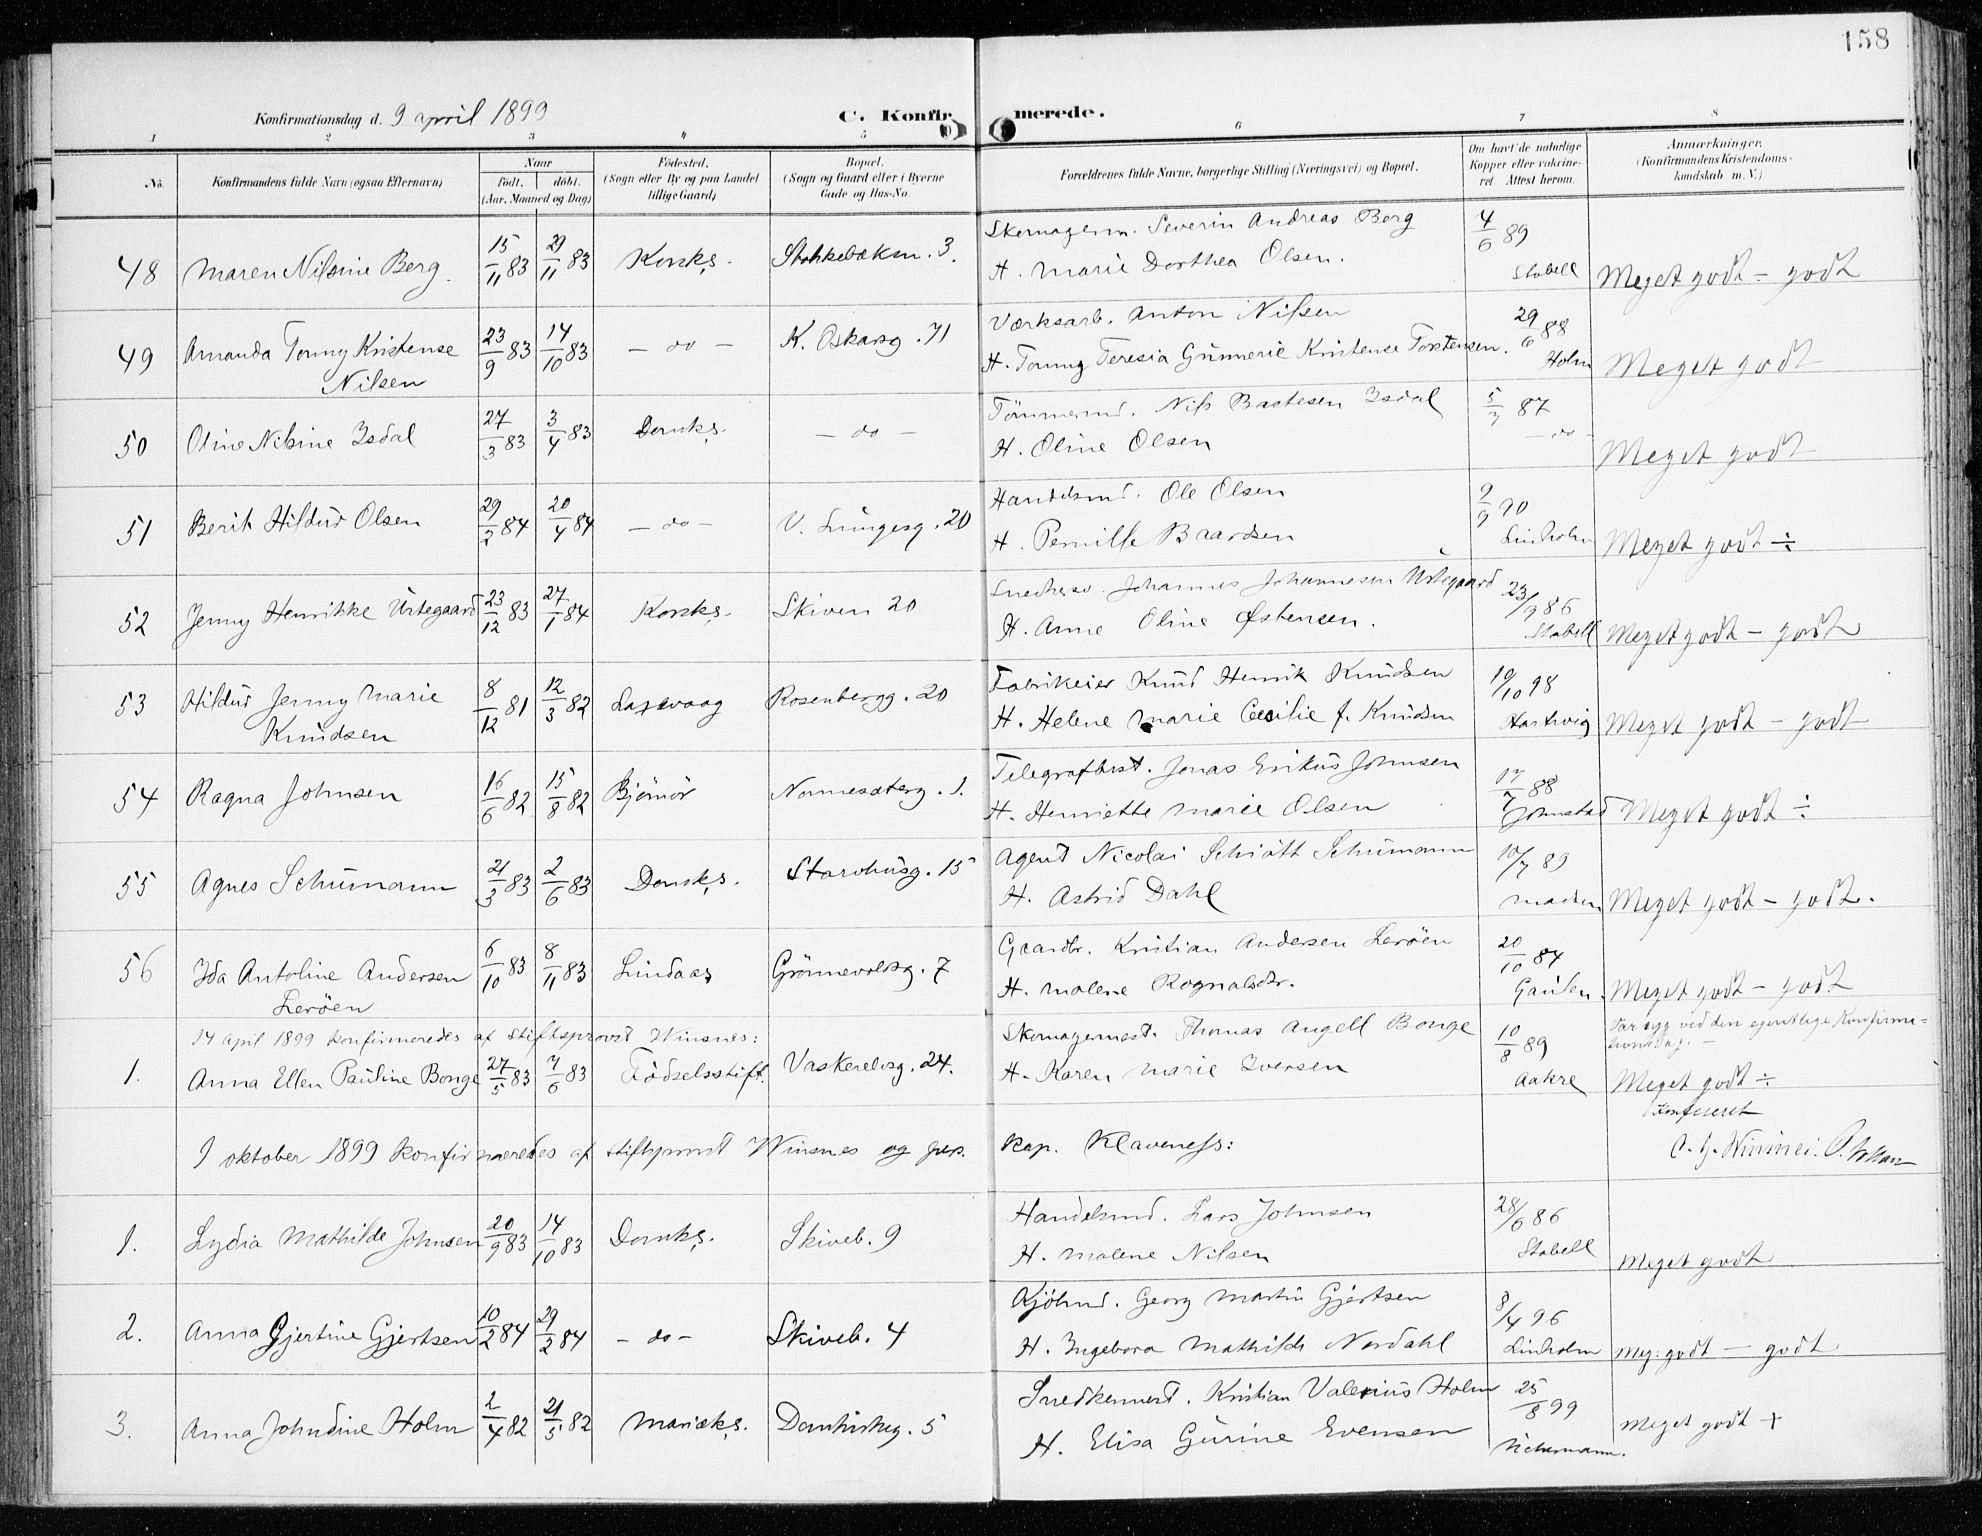 158
Konfirmationsdag d. 9 april 1899
C. Konfirmerede.
1 2 3 4 5 6 7 8
No. Konfirmandens fulde Navn (ogsaa Efternavn) Naar født. døbt. (Aar, Maaned og Dag) Fødested. (Sogn eller By og paa Landet tillige Gaard) Bopæl. (Sogn og Gaard eller i Byerne Gade og Hus-No. Forældrenes fulde Navne, borgerlige Stilling (Næringsvei) og Bopæl. Om havt de naturlige Kopper eller vakcineret. Attest herom. Anmærkninger. (Konfirmandens Kristendomskundskab m. V.)
48 Maren Nilsine Berg. 15/11 83 29/11 83 Korsks. Stokkebæksm. 3. Skomagerm. Severin Andreas Berg 4/6 89
H. Marie Dorthea Olsen. Stabell Meget godt - godt
49 Amanda Tonny Kristense 23/9 83 14/10 83 - do - K. Oskarsg. 71 Værksarb. Anton Nilsen 29/6 88
Nilsen H. Tonny Teresia Gunnerie Kristense Torstensen. Holm Meget godt
50 Oline Nilsine Isdal 27/3 83 3/4 83 Domks. - do - Tømmermd. Nils Bastesen Isdal 5/7 87
H. Oline Olsen - do - Meget godt
51 Berit Hildur Olsen 29/2 84 20/4 84 - do - V. Lungesg. 20 Handelsmd. Ole Olsen 9/9 90
H. Pernille Baardsen Linholm Meget godt ÷
52 Jenny Henrikke Urtegaard 23/12 83 27/1 84 Korsks. Skiven 20 Snedkersv. Johannes Johannesen Urtegaard 23/9 86
H. Anne Oline Østensen. Stabell Meget godt - godt
53 Hildur Jenny Marie 8/12 81 12/3 82 Laxevaag Rosenbergg. 20 Fabrikeier Knud Henrik Knudsen 19/10 98
Knudsen H. Helene Marie Cecilie f. Knudsen Hartwig Meget godt - godt
54 Ragna Johnsen 16/6 82 15/8 82 Bjørnør Nonnesæterg. 1. Telegrafbest. Jonas Erikus Johnsen 17/7 88
H. Henriette Marie Olsen Meget godt ÷
55 Agnes Schumann 21/3 83 2/6 83 Domks. Starvhusg. 15 Agent Nicolai Schiøtt Schumann 10/7 89
H. Astrid Dahl Madsen Meget godt - godt.
56 Ida Antoline Andersen 6/10 83 8/11 83 Lindaas Grønnevoldsg. 7 Gaardbr. Kristian Andersen Lerøen 20/10 84
Lerøen H. Malene Rognaldsdtr. Meget godt - godt
14 april 1899 konfirmeredes af stiftsprovst Winsnes:
Var syg ved den egentlige Konfirmationsdag. -
1. Anna Ellen Pauline Bonge 27/5 83 7/6 83 Fødselsstift. Vaskerelvsg. 24. Skomagermest. Thomas Angell Bonge 10/8 89
H. Karen Marie Iversen Aakre Meget godt ÷
Konfereret
1 oktober 1899 konfirmeredes af stiftsprovst Winsnes og pers. kap. Klaveness:
1. Lydia Mathilde Johnsen 20/9 83 14/10 83 Domks. Skiveb. 9 Handelsmd. Lars Johnsen 28/6 86
H. Malene Nilsen Stabell Meget godt
2. Anna Gjertine Gjertsen 10/2 84 29/2 84 - do - Skiveb. 4 Kjølmd. Georg Martin Gjertsen 8/4 96
H. Ingeborg Mathilde Nordahl Linholm Meg: godt - godt
3. Anna Johndine Holm 2/4 82 21/5 82 Mariæks. Domkirkeg. 5 Snedkermest. Kristian Valerius Holm 25/8 99
H. Elisa Gurine Evensen Meget godt +